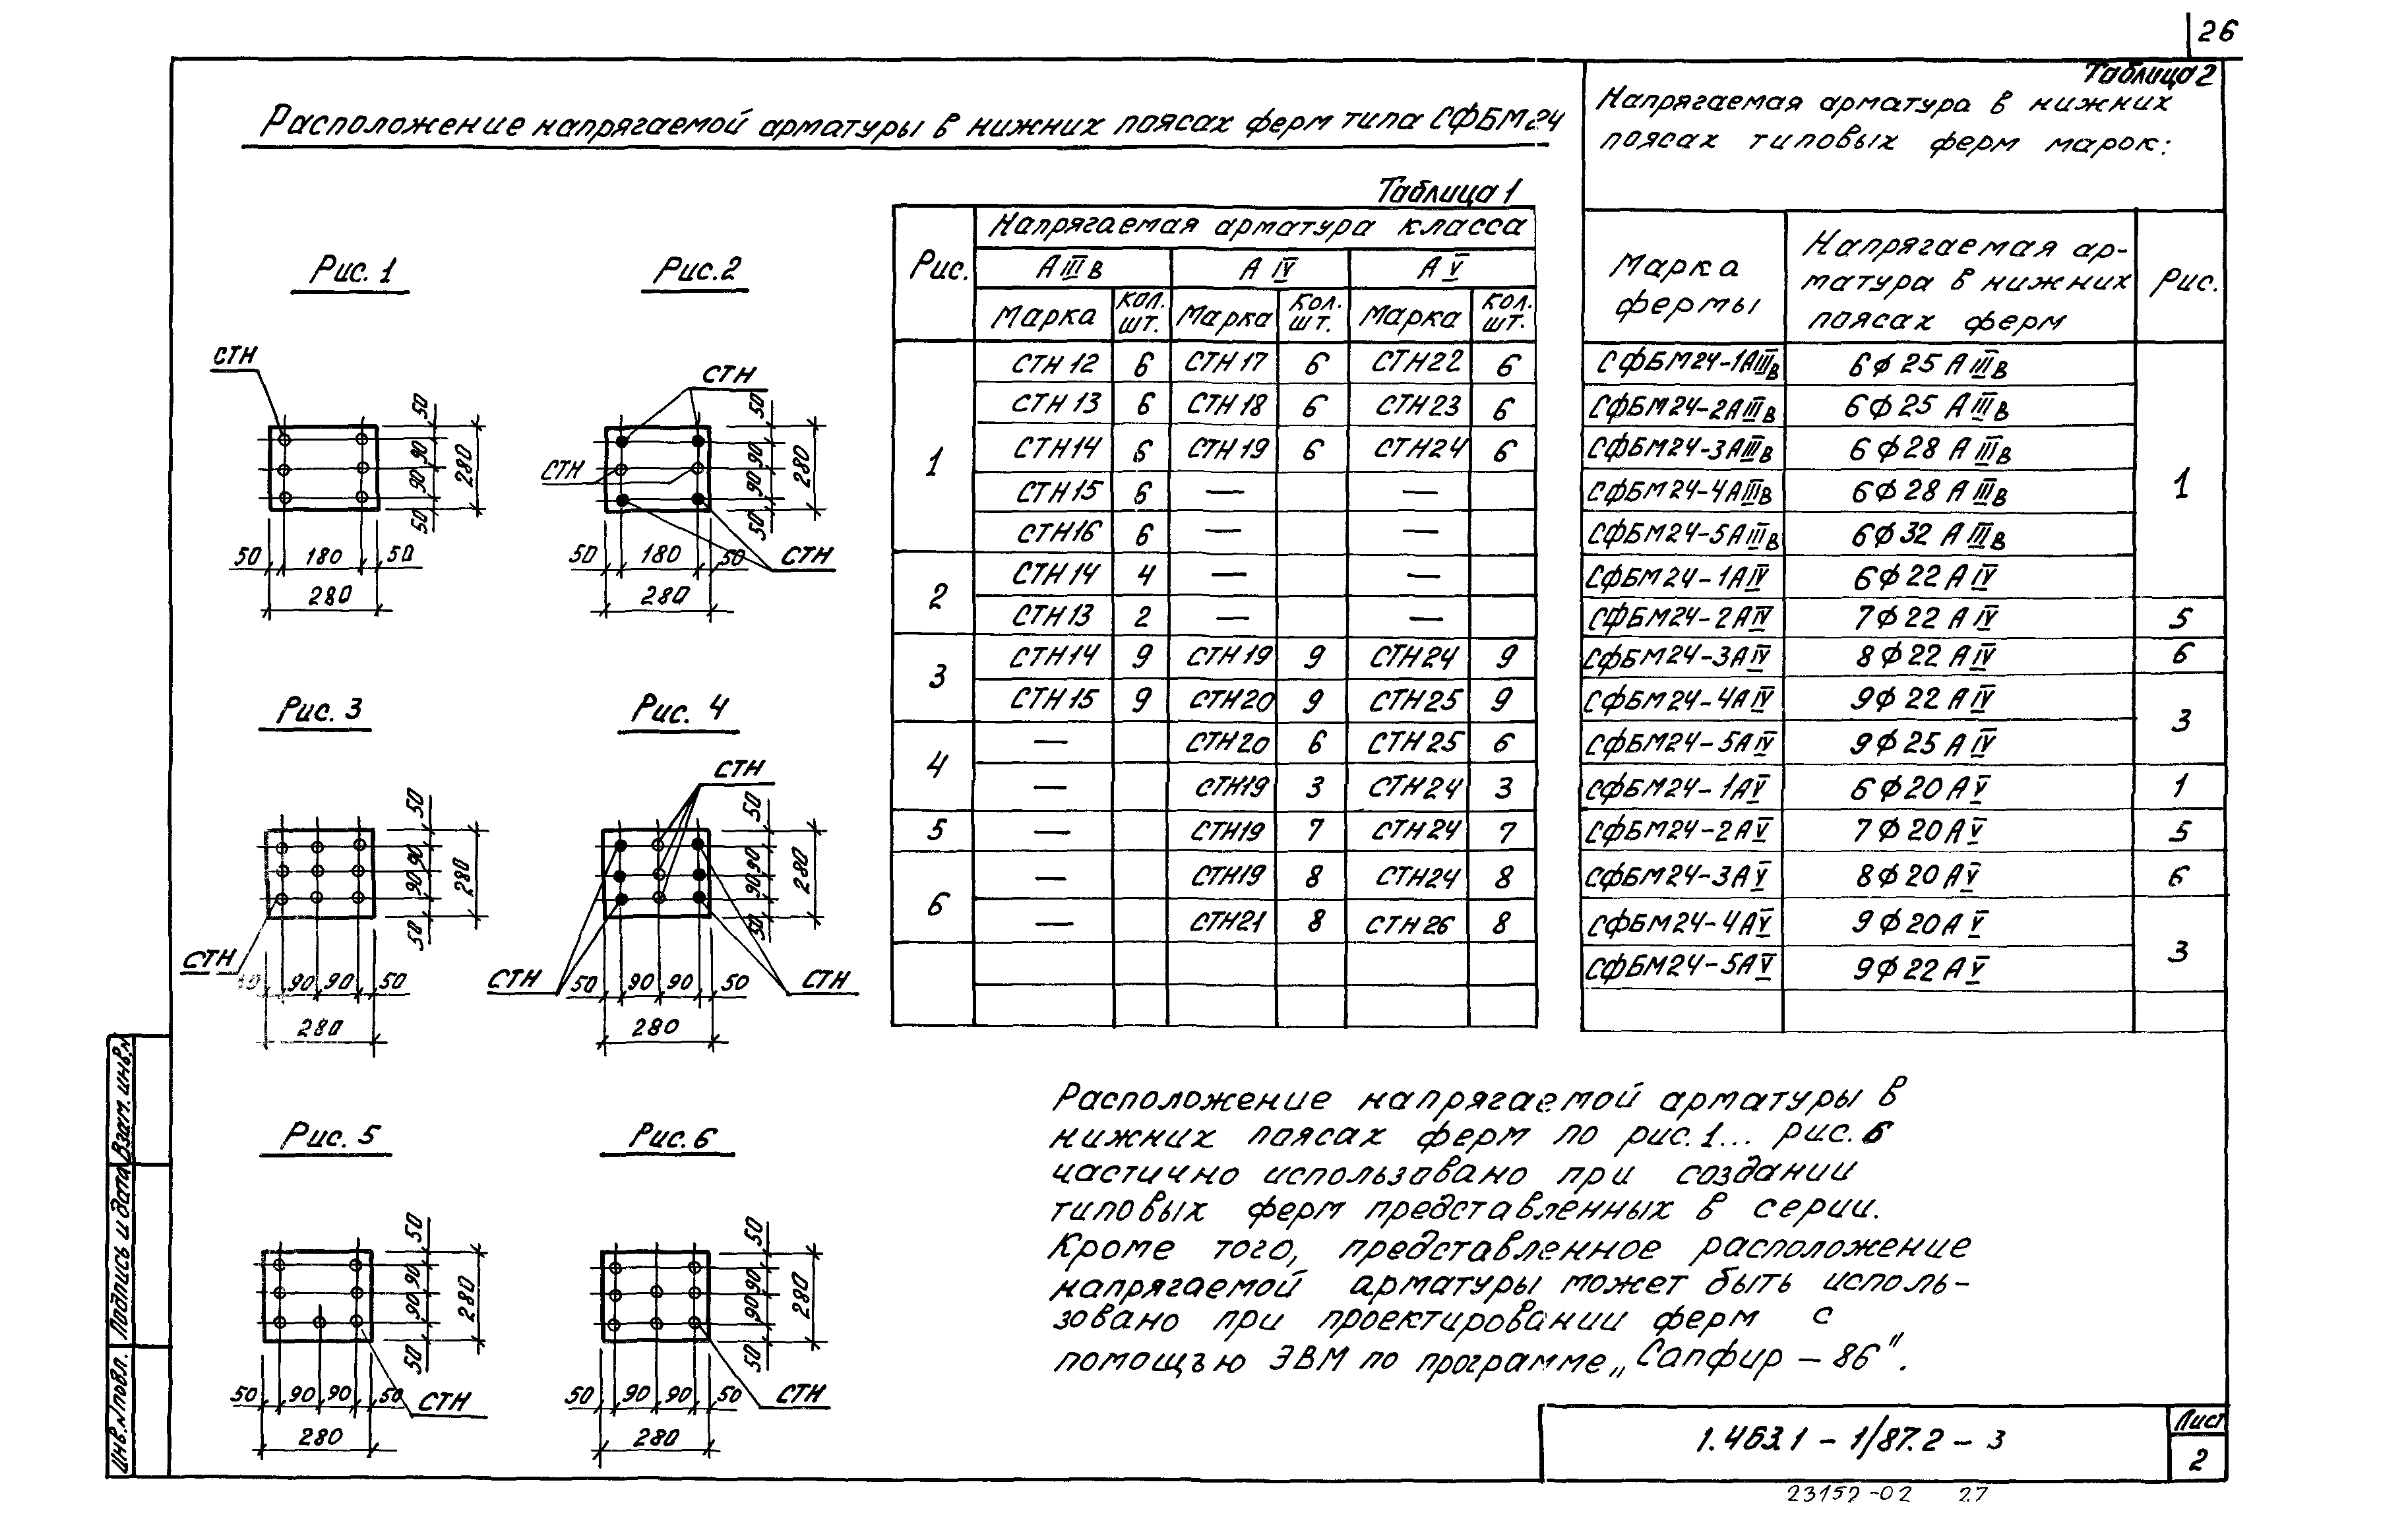 26
Расположение напрягаемой арматуры в нижних поясах ферм типа СФБМ24
Рис. 1
СТН
50 90 90 50 280
50 180 50
280
Рис. 2
СТН
СТН
СТН
50 90 90 50 280
50 180 50
280
Рис. 3
СТН
50 90 90 50 280
90 90 50
280
Рис. 4
СТН
СТН
СТН
50 90 90 50 280
50 90 90 50
280
Рис. 5
50 90 90 50 280
50 90 90 50
СТН
280
Рис. 6
50 90 90 50 280
50 90 90 50
СТН
280
Таблица 1
Рис. Напрягаемая арматура класса
А IIIв А IV А V
Марка кол. шт. Марка кол. шт. Марка кол. шт.
1 СТН 12 6 СТН 17 6 СТН22 6
СТН 13 6 СТН 18 6 СТН23 6
СТН14 6 СТН 19 6 СТН24 6
СТН15 6 — —
СТН16 6 — —
2 СТН 14 4 — —
СТН13 2 — —
3 СТН14 9 СТН 19 9 СТН24 9
СТН15 9 СТН20 9 СТН25 9
4 — СТН20 6 СТН25 6
— СТН19 3 СТН24 3
5 — СТН19 7 СТН24 7
6 — СТН19 8 СТН24 8
— СТН21 8 СТН26 8
Таблица 2
Напрягаемая арматура в нижних
поясах типовых ферм марок:
Марка фермы
Напрягаемая ар-
матура в нижних
поясах ферм
Рис.
СФБМ24-1АIIIв 6ϕ25 А IIIв 1
СФБМ24-2АIIIв 6ϕ25 А IIIв
СФБМ24-3АIIIв 6ϕ28 А IIIв
СФБМ24-4АIIIв 6ϕ28 А IIIв
СФБМ24-5АIIIв 6ϕ32 А IIIв
СФБМ24-1АIV 6ϕ22 А IV
СФБМ24-2АIV 7ϕ22 А IV 5
СФБМ24-3АIV 8ϕ22 А IV 6
СФБМ24-4АIV 9ϕ22 А IV 3
СФБМ24-5АIV 9ϕ25 А IV
СФБМ24-1АV 6ϕ20 А V 1
СФБМ24-2АV 7ϕ20 А V 5
СФБМ24-3АV 8ϕ20 А V 6
СФБМ24-4АV 9ϕ20 А V 3
СФБМ24-5АV 9ϕ22 А V
Расположение напрягаемой арматуры в
нижних поясах ферм по рис.1... рис.6
частично использовано при создании
типовых ферм представленных в серии.
Кроме того, представленное расположение
напрягаемой арматуры может быть исполь-
зовано при проектировании ферм с
помощью ЭВМ по программе „Сапфир – 86".
Взам. инв.№
Подпись и дата
Инв.№ подл.
1.463.1 – 1/87.2 – 3
Лист
2
23152-02 27